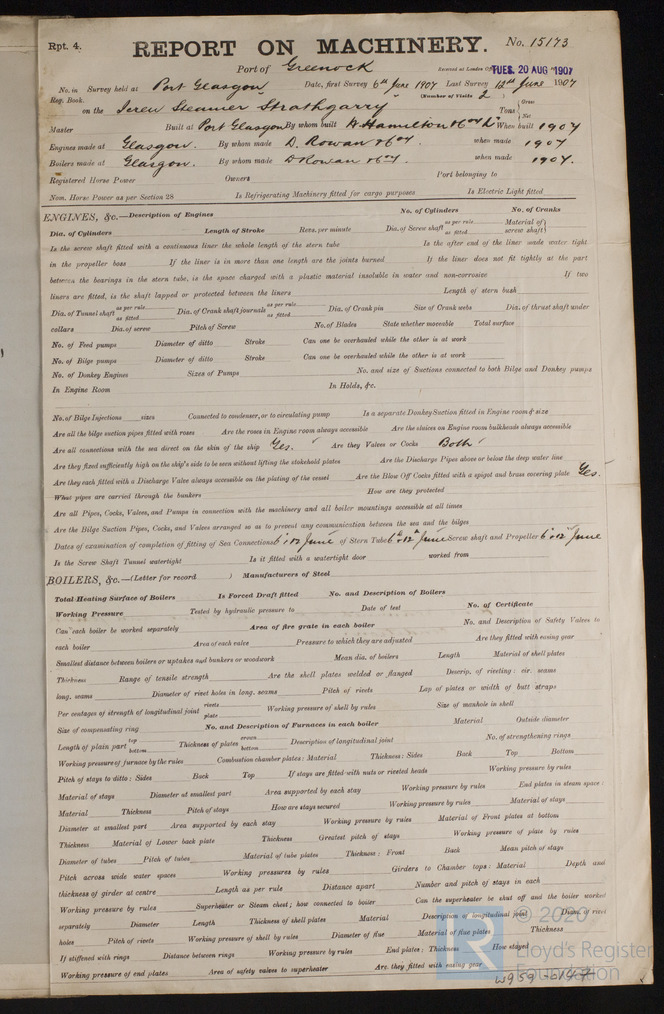 Rpt. 4.
REPORT ON MACHINERY.
No. 15173
Port of Greenock
Received at London Office TUES. 20 AUG 1907
No. in Survey held at Port Glasgow Date, first Survey 6th June 1907 Last Survey 12th June 1907
Reg. Book. (Number of Visits 2 )
on the Screw Steamer Strathgarry Tons { Gross Net
Master Built at Port Glasgow By whom built W. Hamilton & Co Ld When built 1907
Engines made at Glasgow. By whom made D. Rowan & Co. when made 1907
Boilers made at Glasgow. By whom made D Rowan & Co. when made 1907.
Registered Horse Power Owners Port belonging to
Nom. Horse Power as per Section 28 Is Refrigerating Machinery fitted for cargo purposes Is Electric Light fitted
ENGINES, &c.—Description of Engines No. of Cylinders No. of Cranks
Dia. of Cylinders Length of Stroke Revs. per minute Dia. of Screw shaft as per rule as fitted Material of screw shaft
Is the screw shaft fitted with a continuous liner the whole length of the stern tube Is the after end of the liner made water tight
in the propeller boss If the liner is in more than one length are the joints burned If the liner does not fit tightly at the part
between the bearings in the stern tube, is the space charged with a plastic material insoluble in water and non-corrosive If two
liners are fitted, is the shaft lapped or protected between the liners Length of stern bush
Dia. of Tunnel shaft as per rule as fitted Dia. of Crank shaft journals as per rule as fitted Dia. of Crank pin Size of Crank webs Dia. of thrust shaft under
collars Dia. of screw Pitch of Screw No. of Blades State whether moveable Total surface
No. of Feed pumps Diameter of ditto Stroke Can one be overhauled while the other is at work
No. of Bilge pumps Diameter of ditto Stroke Can one be overhauled while the other is at work
No. of Donkey Engines Sizes of Pumps No. and size of Suctions connected to both Bilge and Donkey pumps
In Engine Room In Holds, &c.
No. of Bilge Injections sizes Connected to condenser, or to circulating pump Is a separate Donkey Suction fitted in Engine room & size
Are all the bilge suction pipes fitted with roses Are the roses in Engine room always accessible Are the sluices on Engine room bulkheads always accessible
Are all connections with the sea direct on the skin of the ship Yes. Are they Valves or Cocks Both
Are they fixed sufficiently high on the ship's side to be seen without lifting the stokehold plates Are the Discharge Pipes above or below the deep water line
Are they each fitted with a Discharge Valve always accessible on the plating of the vessel Are the Blow Off Cocks fitted with a spigot and brass covering plate Yes.
What pipes are carried through the bunkers How are they protected
Are all Pipes, Cocks, Valves, and Pumps in connection with the machinery and all boiler mountings accessible at all times
Are the Bilge Suction Pipes, Cocks, and Valves arranged so as to prevent any communication between the sea and the bilges
Dates of examination of completion of fitting of Sea Connections 6 & 12 June of Stern Tube 6 & 12 June Screw shaft and Propeller 6 & 12 June
Is the Screw Shaft Tunnel watertight Is it fitted with a watertight door worked from
BOILERS, &c.—(Letter for record ) Manufacturers of Steel
Total Heating Surface of Boilers Is Forced Draft fitted No. and Description of Boilers
Working Pressure Tested by hydraulic pressure to Date of test No. of Certificate
Can each boiler be worked separately Area of fire grate in each boiler No. and Description of Safety Valves to
each boiler Area of each valve Pressure to which they are adjusted Are they fitted with easing gear
Smallest distance between boilers or uptakes and bunkers or woodwork Mean dia. of boilers Length Material of shell plates
Thickness Range of tensile strength Are the shell plates welded or flanged Descrip. of riveting : cir. seams
long. seams Diameter of rivet holes in long. seams Pitch of rivets Lap of plates or width of butt straps
Per centages of strength of longitudinal joint rivets plate Working pressure of shell by rules Size of manhole in shell
Size of compensating ring No. and Description of Furnaces in each boiler Material Outside diameter
Length of plain part top bottom Thickness of plates crown bottom Description of longitudinal joint No. of strengthening rings
Working pressure of furnace by the rules Combustion chamber plates : Material Thickness : Sides Back Top Bottom
Pitch of stays to ditto : Sides Back Top If stays are fitted with nuts or riveted heads Working pressure by rules
Material of stays Diameter at smallest part Area supported by each stay Working pressure by rules End plates in steam space :
Material Thickness Pitch of stays How are stays secured Working pressure by rules Material of stays
Diameter at smallest part Area supported by each stay Working pressure by rules Material of Front plates at bottom
Thickness Material of Lower back plate Thickness Greatest pitch of stays Working pressure of plate by rules
Diameter of tubes Pitch of tubes Material of tube plates Thickness : Front Back Mean pitch of stays
Pitch across wide water spaces Working pressures by rules Girders to Chamber tops : Material Depth and
thickness of girder at centre Length as per rule Distance apart Number and pitch of stays in each
Working pressure by rules Superheater or Steam chest; how connected to boiler Can the superheater be shut off and the boiler worked
separately Diameter Length Thickness of shell plates Material Description of longitudinal joint Diam. of rivet
holes Pitch of rivets Working pressure of shell by rules Diameter of flue Material of flue plates Thickness
If stiffened with rings Distance between rings Working pressure by rules End plates : Thickness How stayed
Working pressure of end plates Area of safety valves to superheater Are they fitted with easing gear
© 2020
Lloyd's Register
Foundation
W959-0147